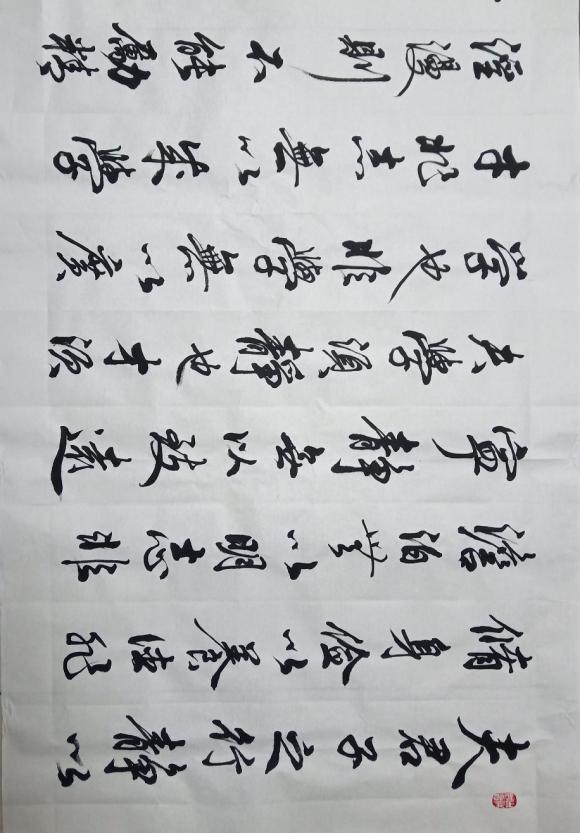 夫君子之行靜以
脩身儉以養德非
澹泊無以明志非
寧靜無以致遠
夫學須靜也才須
學也非學無以廣
才非志無以成學
淫漫則不能勵精